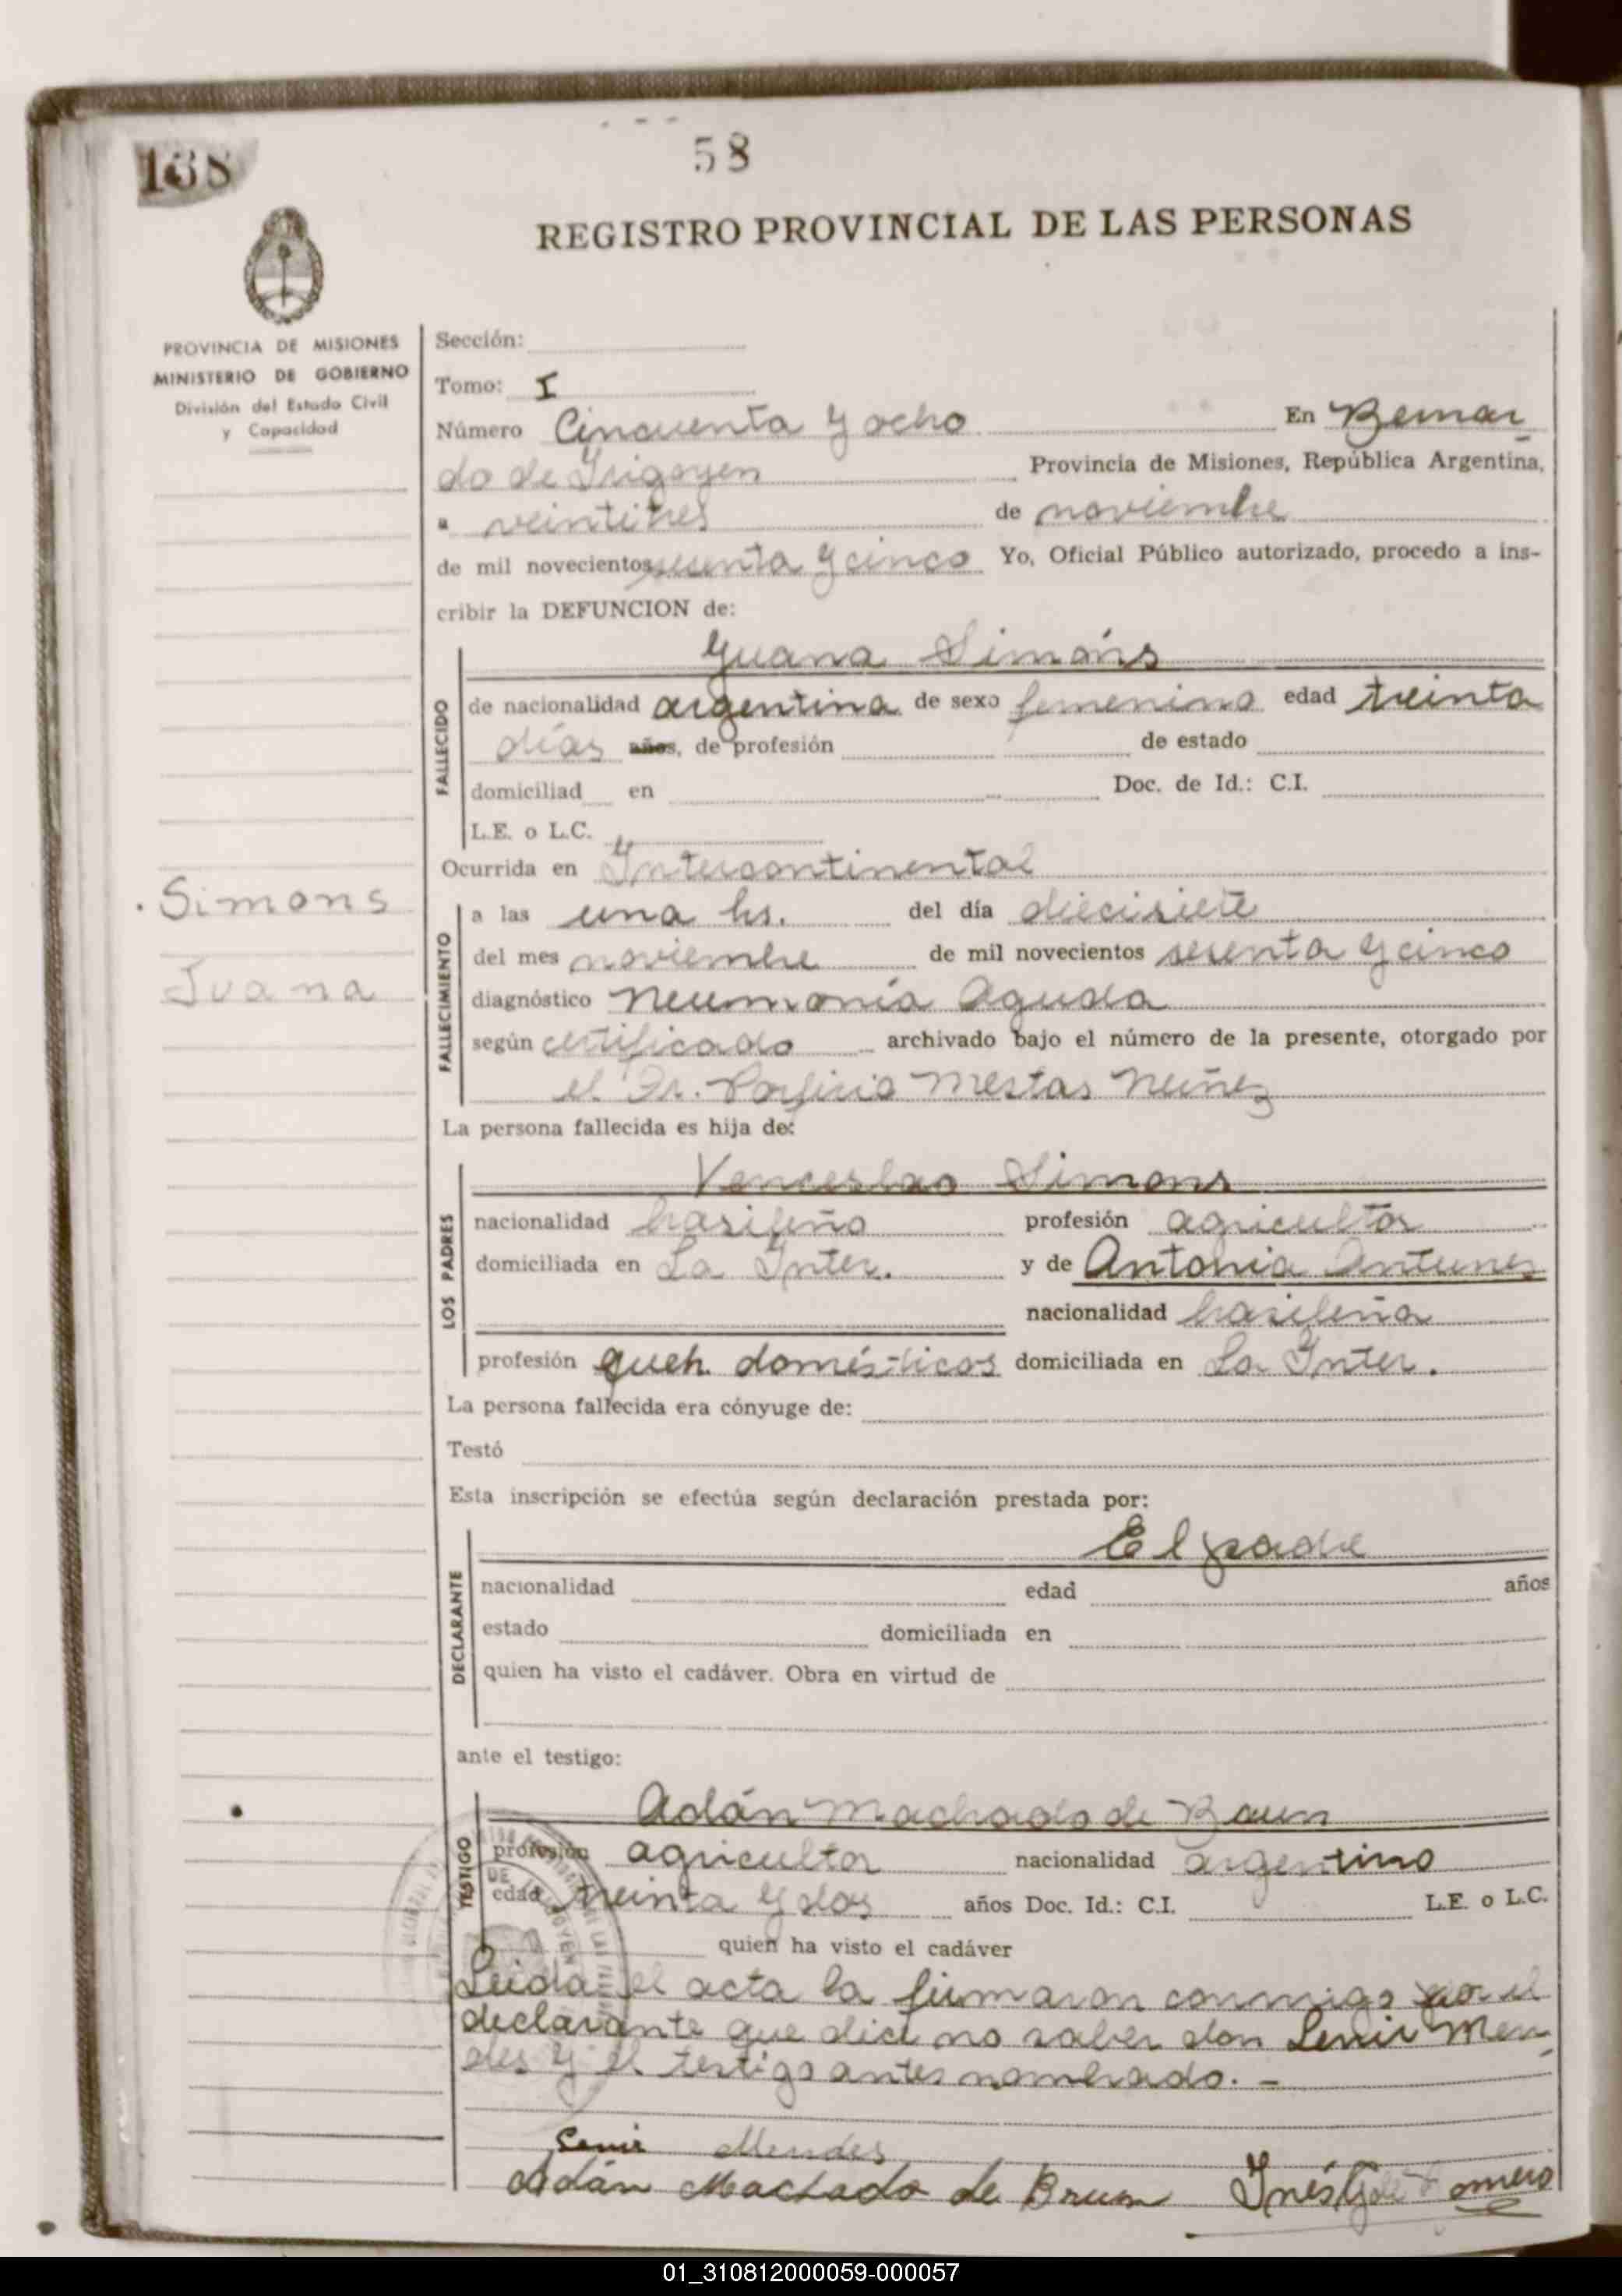 138
58
REGISTRO PROVINCIAL DE LAS PERSONAS
PROVINCIA DE MISIONES
MINISTERIO DE GOBIERNO
División del Estado Civil
y Capacidad
Sección:
Tomo: I
Número Cincuenta y ocho En Bernar-
do de Irigoyen Provincia de Misiones, República Argentina,
a veintitres de noviembre
de mil novecientos sesenta y cinco Yo, Oficial Público autorizado, procedo a ins-
cribir la DEFUNCION de:
Juana Simons
FALLECIDO
de nacionalidad argentina de sexo femenino edad treinta
días años, de profesión de estado
domiciliad en Doc. de Id.: C.I.
L.E. o L.C.
Ocurrida en Intercontinental
Simons
Juana
FALLECIMIENTO
a las una hs. del día diecisiete
del mes noviembre de mil novecientos sesenta y cinco
diagnóstico neumonía aguda
según certificado archivado bajo el número de la presente, otorgado por
el Dr. Porfirio Mestas Nuñez
La persona fallecida es hija de:
Venceslao Simons
LOS PADRES
nacionalidad brasileño profesión agricultor
domiciliada en La Inter. y de Antonia Antunes
nacionalidad brasileña
profesión queh. domésticos domiciliada en La Inter.
La persona fallecida era cónyuge de:
Testó
Esta inscripción se efectúa según declaración prestada por:
El padre
DECLARANTE
nacionalidad edad años
estado domiciliada en
quien ha visto el cadáver. Obra en virtud de
ante el testigo:
Adán Machado de Brum
TESTIGO
profesión agricultor nacionalidad argentino
edad treinta y dos años Doc. Id.: C.I. L.E. o L.C.
quien ha visto el cadáver
Leida el acta la firmaron conmigo por el
declarante que dice no saber don Lenir Men-
des y el testigo antes nombrado. -
Lenir Mendes
Adán Machado de Brum Inés G de Romero
01_310812000059-000057